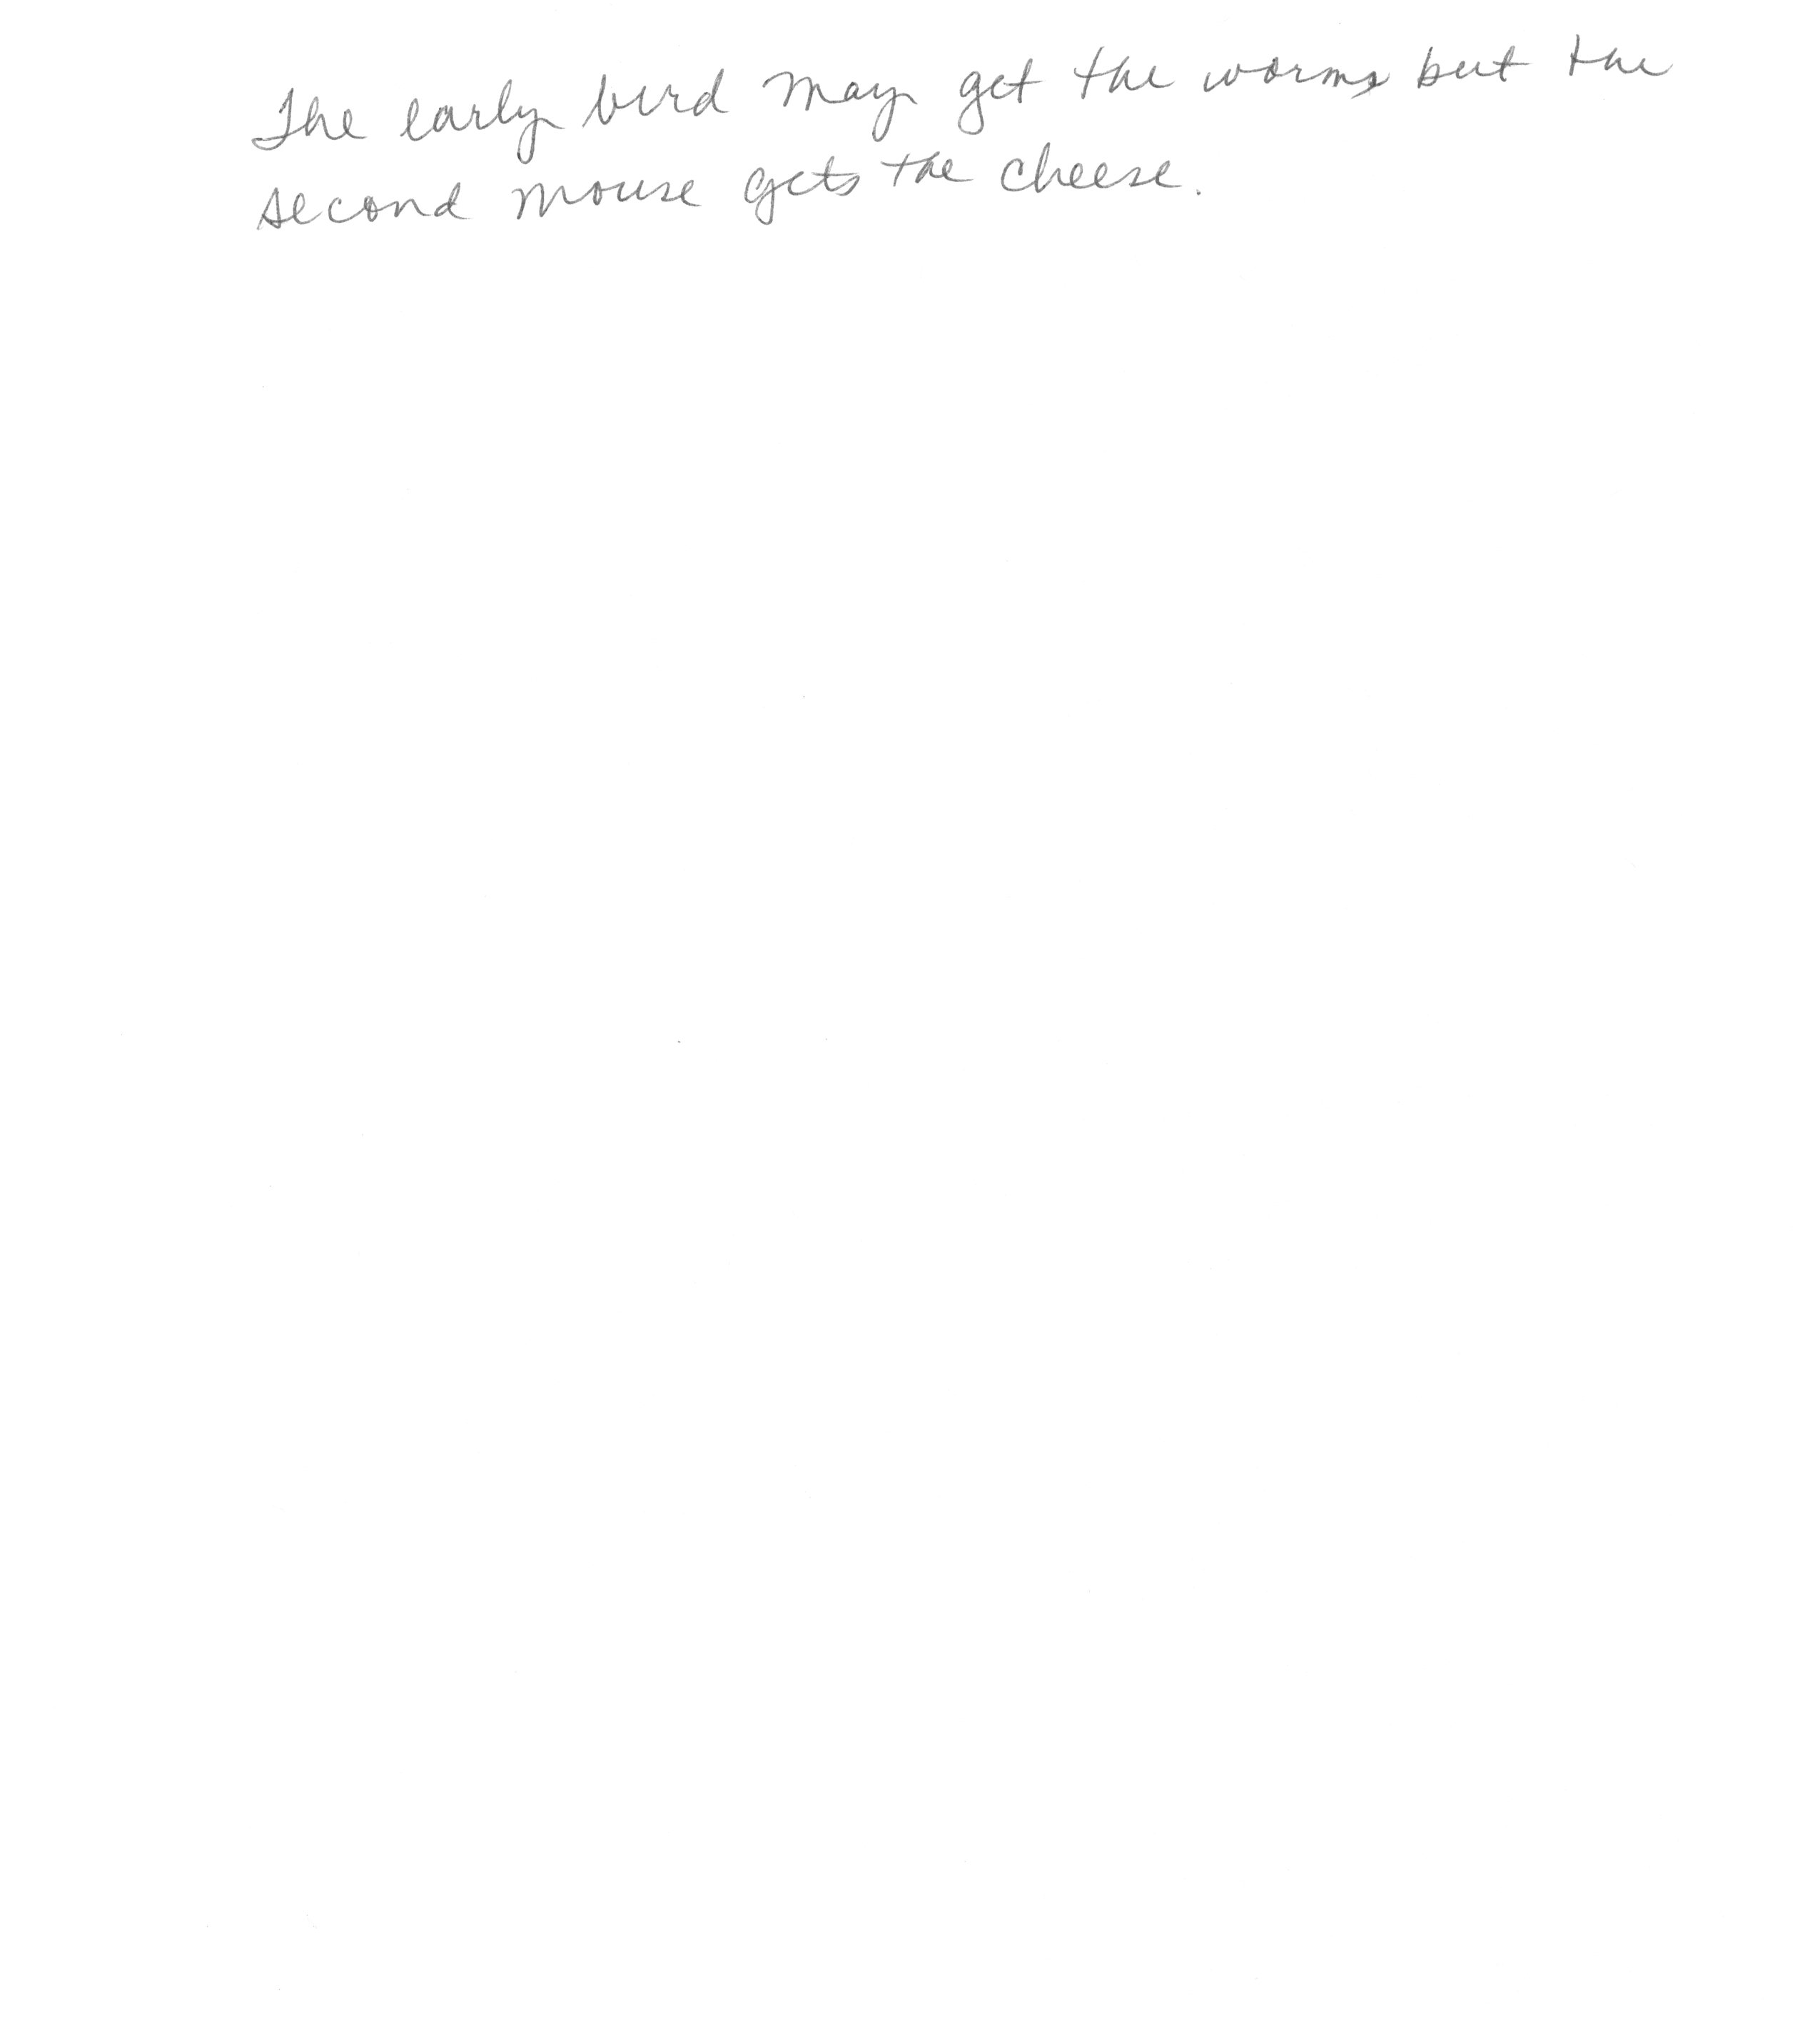 The early bird may get the worms but the
second mouse gets the cheese.